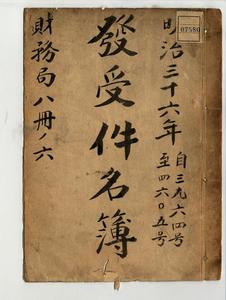 07580
明治三十六年
自三九六四号
至四六〇五号
發受件名簿
財務局八冊ノ六